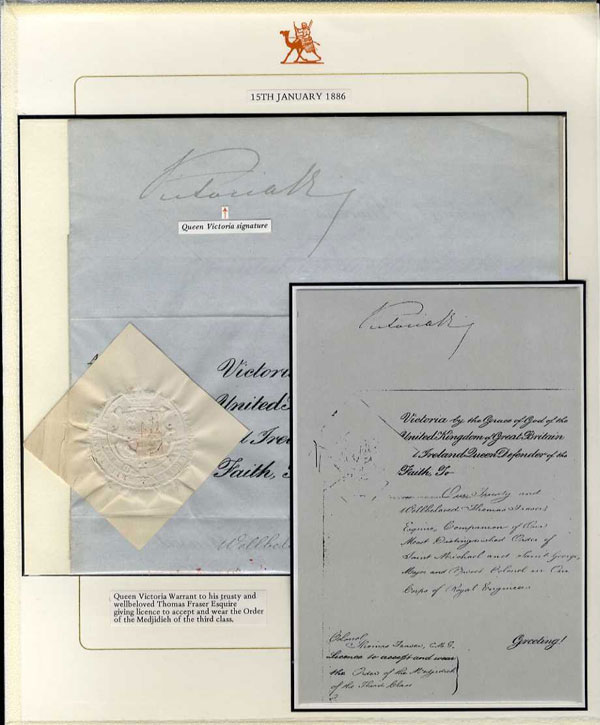 15TH JANUARY 1886
Victoria RI
Queen Victoria signature
Victori
United
& Irel
Faith,
Wellbel
Queen Victoria Warrant to his trusty and
wellbeloved Thomas Fraser Esquire
giving licence to accept and wear the Order
of the Medjidieh of the third class.
Victoria RI
Victoria by the Grace of God of the
United Kingdom of Great Britain
& Ireland Queen Defender of the
Faith, To
Our Trusty and
Wellbeloved Thomas Fraser
Esquire, Companion of Our
Most Distinguished Order of
Saint Michael and Saint George,
Major and Brevet Colonel in Our
Corps of Royal Engineers
Greeting!
Colonel
Thomas Fraser, C.M.G.
Licence to accept and wear
the Order of the Medjidieh
of the Third Class